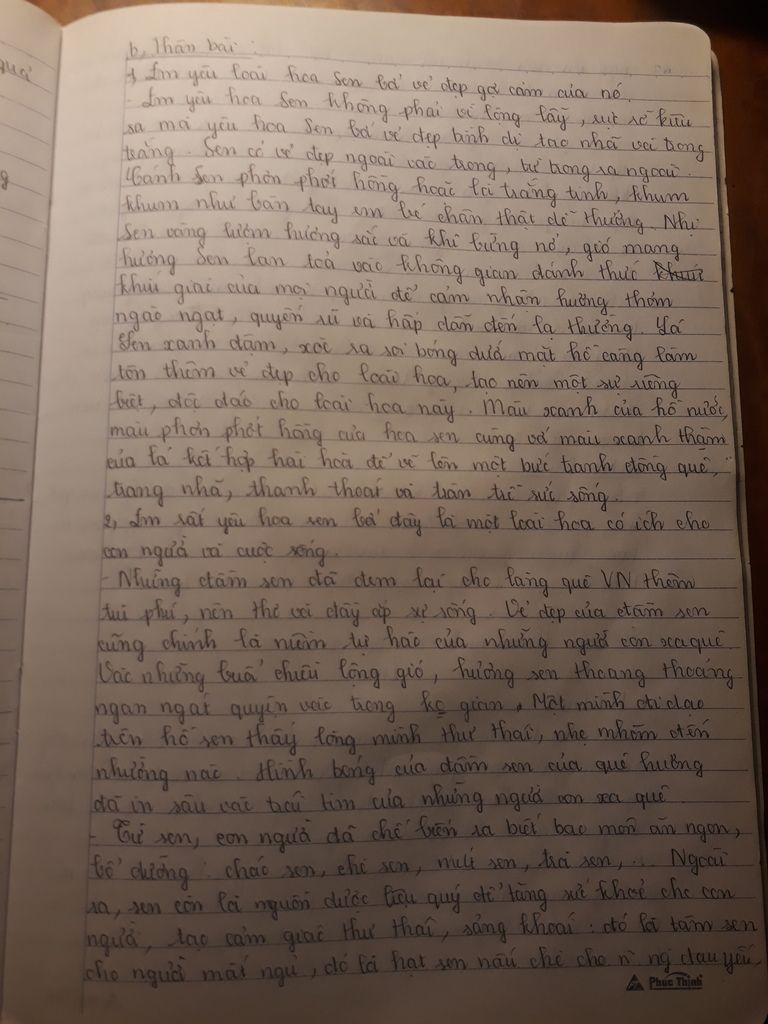 b, Thân bài :
1, Em yêu loài hoa sen bởi vẻ đẹp gợi cảm của nó.
- Em yêu hoa sen không phải vì lộng lẫy, rực rỡ kiêu
sa mà yêu hoa sen bởi vẻ đẹp bình dị tao nhã và trong
trắng. Sen có vẻ đẹp ngoài vào trong, từ trong ra ngoài.
Cánh sen phơn phớt hồng hoặc là trắng tinh, khum
khum như bàn tay em bé chân thật dễ thương. Nhị
sen vàng ươm hương sắc và khi bừng nở, gió mang
hương sen lan toả vào không gian đánh thức
khứu giác của mọi người để cảm nhận hương thơm
ngào ngạt, quyến rũ và hấp dẫn đến lạ thường. Lá
sen xanh đậm, xoè ra soi bóng dưới mặt hồ càng làm
tôn thêm vẻ đẹp cho loài hoa, tạo nên một sự riêng
biệt, độc đáo cho loài hoa này. Màu xanh của hồ nước,
màu phơn phớt hồng của hoa sen cùng với màu xanh thẫm
của lá kết hợp hài hoà để vẽ lên một bức tranh đồng quê,
trang nhã, thanh thoát và tràn trề sức sống.
2, Em rất yêu hoa sen bởi đây là một loài hoa có ích cho
con người và cuộc sống.
- Những đầm sen đã đem lại cho làng quê VN thêm
trù phú, nên thơ và đầy ắp sự sống. Vẻ đẹp của đầm sen
cũng chính là niềm tự hào của những người con xa quê.
Vào những buổi chiều lộng gió, hương sen thoang thoảng
ngan ngát quyện vào trong ko gian. Một mình đi dạo
trên hồ sen thấy lòng mình thư thái, nhẹ nhõm đến
nhường nào. Hình bóng của đầm sen của quê hương
đã in sâu vào trái tim của những người con xa quê
- Từ sen, con người đã chế biến ra biết bao món ăn ngon,
bổ dưỡng : cháo sen, chè sen, mứt sen, trà sen, ... Ngoài
ra, sen còn là nguồn dược liệu quý để tăng sức khoẻ cho con
người, tạo cảm giác thư thái, sảng khoái : đó là tâm sen
cho người mất ngủ, đó là hạt sen nấu chè cho n ng đau yếu,
Phúc Thịnh